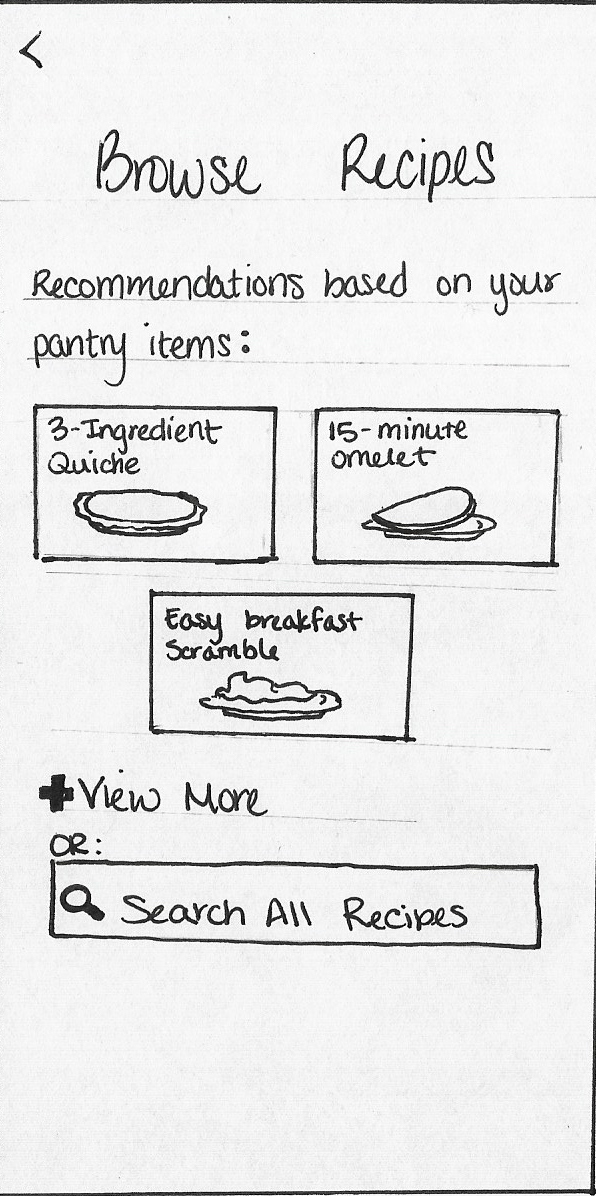 <
Browse Recipes
Recommendations based on your
pantry items:
3-Ingredient
Quiche
15-minute
omelet
Easy breakfast
Scramble
+View More
OR:
Search All Recipes